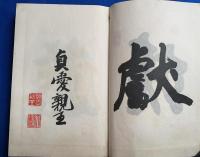 獻
貞愛親王